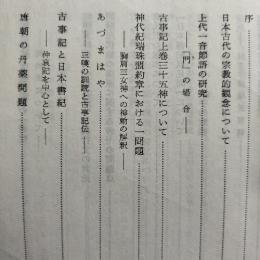 序
日本古代の宗教的観念について
上代一音節語の研究
――「門」の場合――
古事記上巻三十五神について
神代紀瑞珠盟約章における一問題
――胸肩三女神への神勅の解釈――
あづまはや
――三嘆の訓読と古事記伝――
古事記と日本書紀
――仲哀記を中心として――
唐朝の丹薬問題